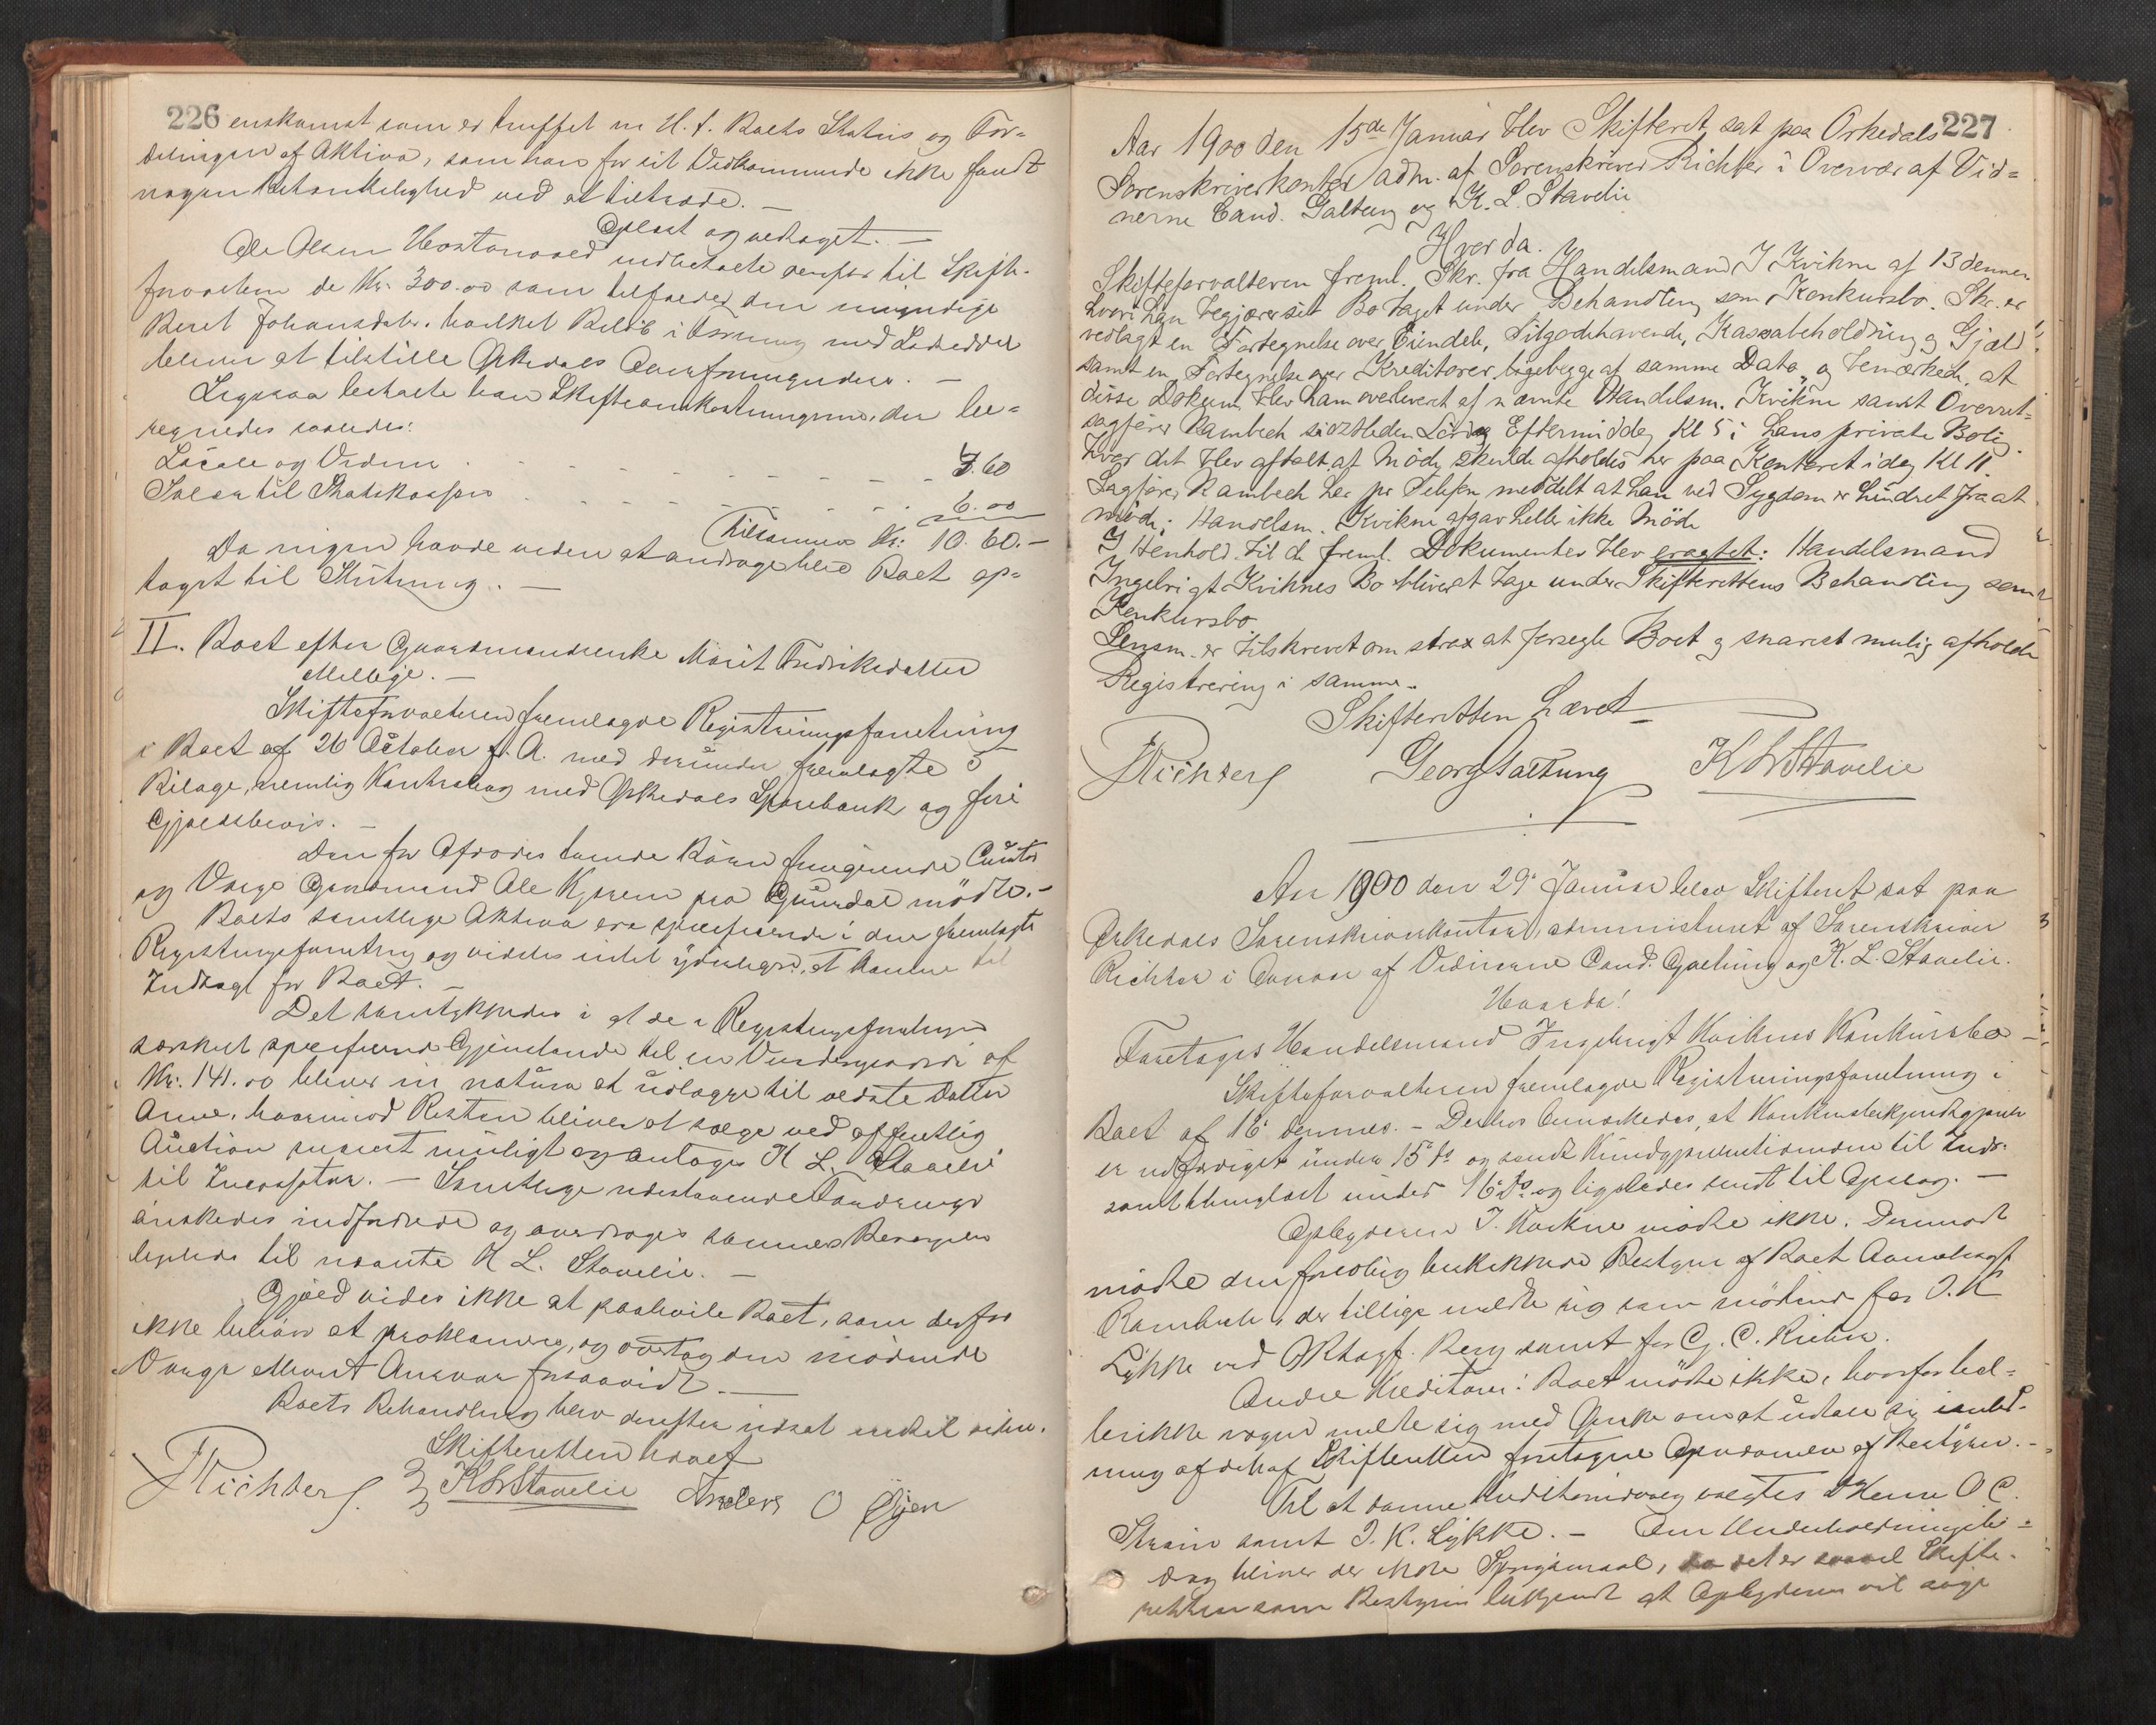 226 enskomst som er truffet m. H. t. Boets Status og For=
delingen af Aktiva, som han for sit Vedkommende ikke fandt
nogen Betænkelighed ved at tiltræde. —
Oplæst og vedtaget. —
Ole Olsen indbetalte derefter til Skifte-
forvalteren de Kr. 300.00 som tilfalder den umyndige
Beret Johansdatter. hvilket Beløb i med Lodseddel
bliver at tilstille Orkedals Overformynderi. —
Ligesaa betalte han Skifteomkostningerne, der be=
regnedes saaledes:
Locale og Vidner . - - - - - - - 4.60
Salær til Statskassen - - - - - - 6.00
Tilsammen Kr: 10.60.—
Da ingen havde videre at andrage blev Boet op=
taget til Slutning. —
II. Boet efter Gaardmandsenke Marit Fredriksdatter
Melbye. —
Skifteforvalteren fremlagde Registreringsforretning
i Boet af 26 October f. A. med derunder fremlagte 5
Bilage, nemlig Kontrabog med Orkedals Sparebank og fire
Gjældsbevis. —
Den for Afdødes Børn fungerende Curator
og Værge Gaardmand Ole mødte. —
Boets samtlige Aktiva ere specificerede i den fremlagte
Registreringsforretning og vides intet yderligere, at komme til
Indtægt for Boet. —
Det samtykkedes i at de i Registreringsforretningen
særskilt specificerede Gjenstande til en Vurderingsværdi af
Kr: 141.00 bliver in natura at udlægge til ældste Datter
Anne, hvorimod Resten bliver at sælge ved offentlig
Auction snarest muligt og antages K L. Stavelie
til Incassator. — Samtlige udestaaende Fordringer
ønskedes indfordrede og overdroges sammes Besørgelse
ligeledes til nævnte K L. Stavelie. —
Gjæld vides ikke at paahvile Boet, som derfor
ikke behøver at proklameres, og overtog den mødende
Værge Ansvar forsaavidt. —
Boets Behandling blev derefter udsat indtil videre.
Skifteretten hævet
Richter K L Stavelie Anders O Øyen
227
Aar 1900 den 15de Januar blev Skifteret sat paa Orkedals
Sorenskriverkontor adm. af Sorenskriver Richter i Overvær af Vid=
nerne Cand. Galtung og K. L. Stavelie
Hvorda.
Skifteforvalteren freml. Skr. fra Handelsmand I Kvikne af 13 dennes
hvori han begjærer sit Bo taget under Behandling som Konkursbo. Skr. er
vedlagt en Fortegnelse over Eiendele, Tilgodehavende, Kassabeholdning og Gjæld
samt en Fortegnelse over Kreditorer, begge af samme Dato, og bemærkede, at
disse Dokum. blev ham overleveret af nævnte Handelsm. Kvikne samt Overret=
sagfører Rambech sidstleden Lørdag Eftermiddag Kl 5 i hans private Bolig
hvor det blev aftalt at Møde skulde afholdes her paa Kontoret idag Kl 11.
Sagfører Rambech har pr Telefon meddelt at han ved Sygdom er hindret fra at
møde; Handelsm. Kvikne afgav heller ikke Møde
I Henhold til de freml. Dokumenter blev eragtet: Handelsmand
Ingebrigt Kviknes Bo bliver at tage under Skifterettens Behandling som
Konkursbo
Lensm. er tilskrevet om strax at forsegle Boet og snarest mulig afholde
Registrering i samme.
Skifteretten hævet
Richter Georg Galtung K L Stavelie
Aar 1900 den 29. Januar blev Skifteret sat paa
Orkedals Sorenskriverkontor, administreret af Sorenskriver
Richter i Overvær af Vidnerne Cand. Galtung og K. L. Stavelie.
Hvorda!
Foretages Handelsmand Ingebrigt Kviknes Konkursbo —
Skifteforvalteren fremlagde Registreringsforretning i
Boet af 16 dennes. — Derhos bemærkedes, at
er udfærdiget under 15 ds og sendt til Indr.
samt thinglæst under 16 ds og ligeledes sendt til Opslag. —
Opbyderen I. Kvikne mødte ikke. Derimod
mødte den foreløbig beskikkede Bestyrer af Boet
Rambech, der tillige meldte sig som mødende for I. K
Lykke ved ORsagf. Berg samt for C. Richter.
Andre Kreditorer i Boet mødte ikke, hvorfor hel=
ler ikke nogen meldte sig med Ønske om at udtale sig i anled=
ning af det af Skifteretten foretagne Opnævnelse af Bestyrer. —
Til at danne Kreditorudvalg valgtes DHerrer O C.
samt I. K. Lykke. — Om Underholdningsbi=
drag bliver der ikke Spørgsmaal, da det er saavel Skifte=
retten som Bestyreren bekjendt at Opbyderen vil søge